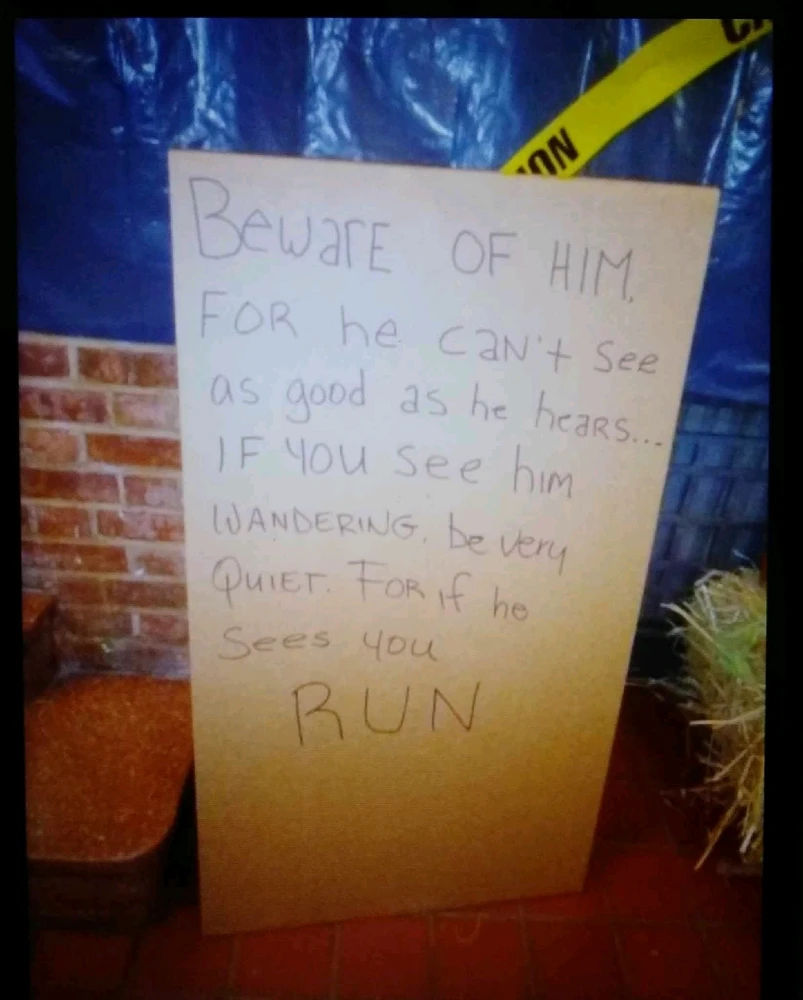 CA
ION
BewarE OF HIM.
FOR he caN't see
as good as he heaRs...
IF YOU see him
WANDERING. be very
QUIET. FOR if he
Sees you
RUN